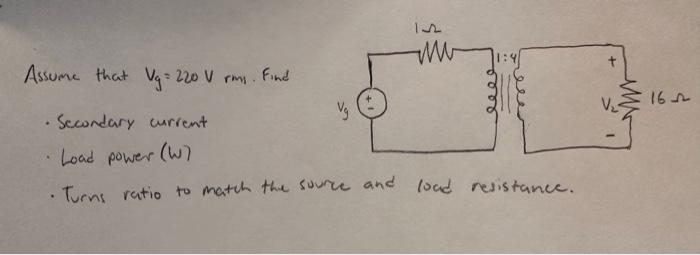 1Ω
1:4
Assume that Vg = 220 V rms. Find
+
Vg
+
-
V2
16 Ω
-
· Secondary current
· Load power (W)
· Turns ratio to match the source and load resistance.